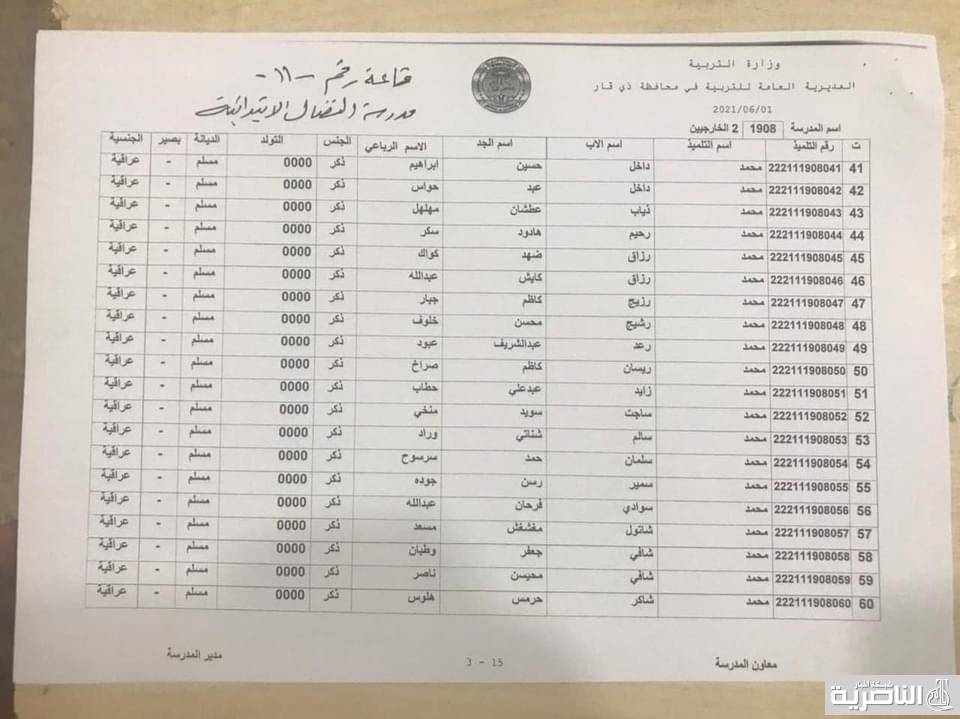 وزارة التربية
المديرية العامة للتربية في محافظة ذي قار
2021/06/01
قاعة رقم -١١-
مدرسة النضال الابتدائية
اسم المدرسة 1908 2 الخارجيين
ت رقم التلميذ اسم التلميذ اسم الاب اسم الجد الاسم الرباعي الجنس التولد الديانة بصير الجنسية
41 222111908041 محمد داخل حسين ابراهيم ذكر 0000 مسلم - عراقية
42 222111908042 محمد داخل عبد حواس ذكر 0000 مسلم - عراقية
43 222111908043 محمد ذياب عطشان مهلهل ذكر 0000 مسلم - عراقية
44 222111908044 محمد رحيم هادود سكر ذكر 0000 مسلم - عراقية
45 222111908045 محمد رزاق ضهد كواك ذكر 0000 مسلم - عراقية
46 222111908046 محمد رزاق كايش عبدالله ذكر 0000 مسلم - عراقية
47 222111908047 محمد رزيج كاظم جبار ذكر 0000 مسلم - عراقية
48 222111908048 محمد رشيج محسن خلوف ذكر 0000 مسلم - عراقية
49 222111908049 محمد رعد عبدالشريف عبود ذكر 0000 مسلم - عراقية
50 222111908050 محمد ريسان كاظم صراخ ذكر 0000 مسلم - عراقية
51 222111908051 محمد زايد عبدعلي حطاب ذكر 0000 مسلم - عراقية
52 222111908052 محمد ساجت سويد منخي ذكر 0000 مسلم - عراقية
53 222111908053 محمد سالم شناتي وراد ذكر 0000 مسلم - عراقية
54 222111908054 محمد سلمان حمد سرسوح ذكر 0000 مسلم - عراقية
55 222111908055 محمد سمير رسن جوده ذكر 0000 مسلم - عراقية
56 222111908056 محمد سوادي فرحان عبدالله ذكر 0000 مسلم - عراقية
57 222111908057 محمد شاتول مغشغش مسعد ذكر 0000 مسلم - عراقية
58 222111908058 محمد شافي جعفر وطبان ذكر 0000 مسلم - عراقية
59 222111908059 محمد شافي محيسن ناصر ذكر 0000 مسلم - عراقية
60 222111908060 محمد شاكر حرمس هلوس ذكر 0000 مسلم - عراقية
معاون المدرسة 3 - 15 مدير المدرسة
شبكة أخبار
الناصرية